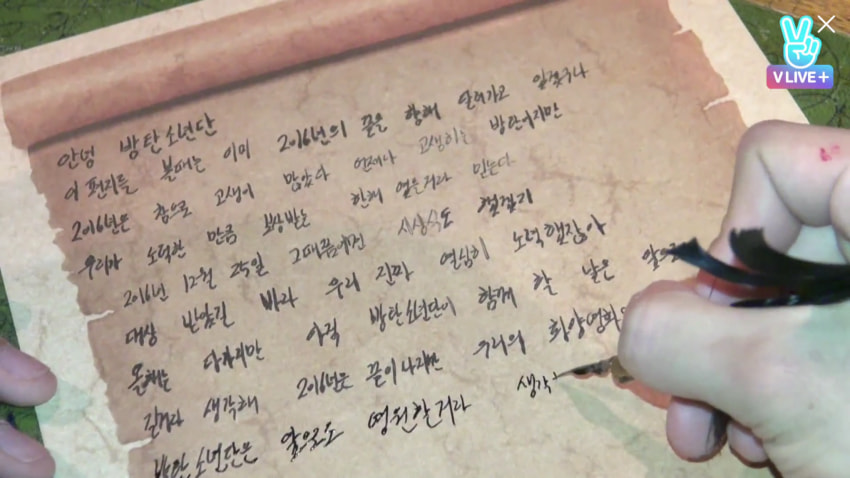 V LIVE+
안녕 방탄소년단
이 편지를 볼때는 이미 2016년의 끝을 향해 달려가고 있겠구나
2016년은 참으로 고생이 많았다 언제나 고생하는 방탄이지만
우리가 노력한 만큼 보상받는 한해 였을거라 믿는다
2016년 12월 25일 그때쯤이면 시상식도 했겠지
대상 받았길 바라 우리 진짜 열심히 노력했잖아
올해는 다갔지만 아직 방탄소년단이 함께 할 날은 앞으로
길거라 생각해 2016년은 끝이나지만 우리의 화양연화
방탄소년단은 앞으로도 영원할거라 생각